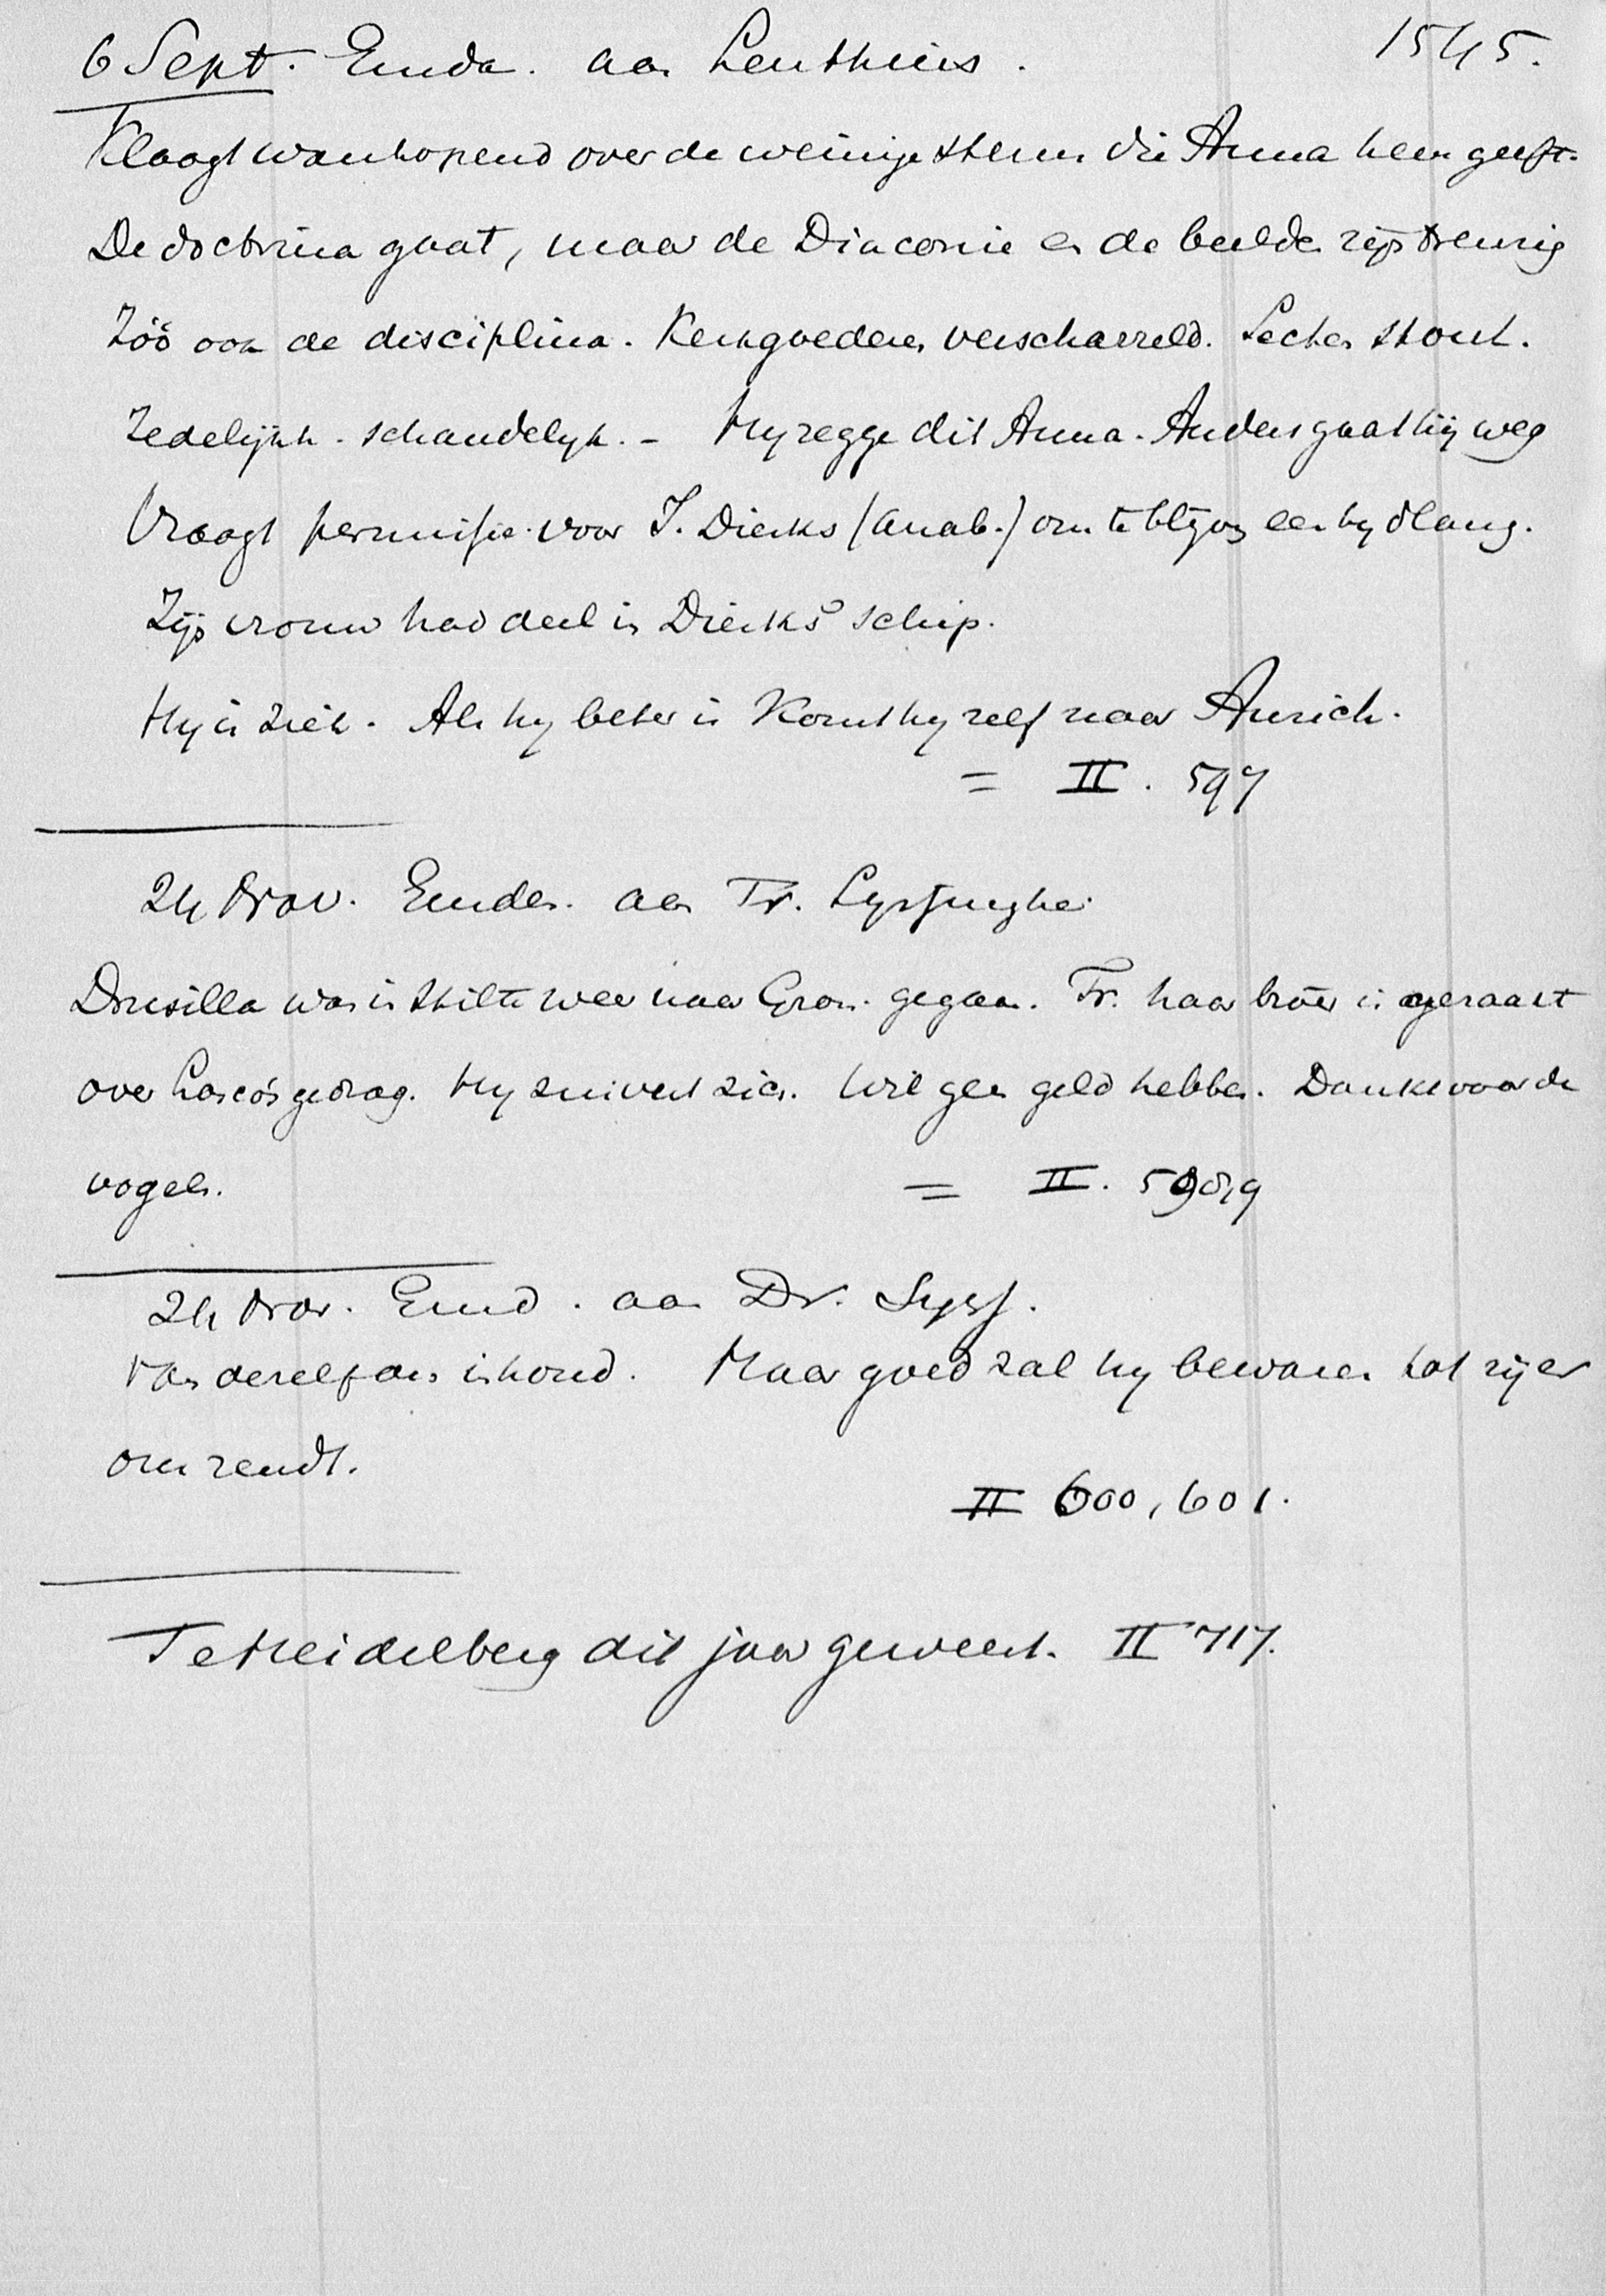 6 Sept. Emda. aan Lenthius. 1545.
Klaagt wanhopend over de weinige steun die Anna hem geeft.
De doctrina gaat, maar de Diaconie en de beelden zijn treurig
Zóó ook de disciplina. Kerkgoederen verschacheld. Secten stout.
Zedelijkh. schandelyk. - Hy zegge dit Anna. Anders gaat hij weg
Vraagt permissie voor J. Dierks (anab.) om te blijven een tydlang.
Zijn vrouw had deel in Dierks' schip.
Hy is ziek. Als hy beter is komt hy zelf naar Aurich.
= II. 597
24 Nov. Emden. aan Fr. Sypsinghe.
Drusilla was in stilte weer naar Gron. gegaan. Fr. haar broer is geraakt
over Lasco's gedrag. Hy zuivert zich. Wil geen geld hebben. Dankt voor de
vogels. = II. 598,9
24 Nov. Emd. aan Dr. Syps.
Van denzelfden inhoud. Haar goed zal hy bewaren tot zij er
om zendt.
II 600, 601.
Te Heidelberg dit jaar geweest. II 717.